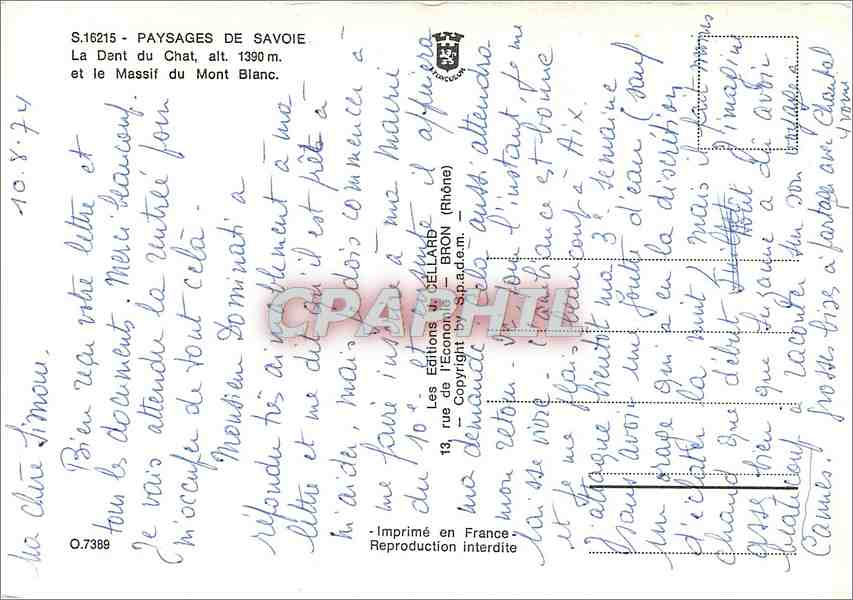 S.16215 - PAYSAGES DE SAVOIE
La Dent du Chat, alt. 1390 m.
et le Massif du Mont Blanc.
YVUCOLOR
Les Editions J. CELLARD
13, rue de l'Economie - BRON (Rhône)
- Copyright by S.p.a.d.e.m. -
CPAPHIL
O.7389
-Imprimé en France-
Reproduction interdite
10.8.74
Ma chère Simone,
Bien reçu votre lettre et
tous les documents. Merci beaucoup.
Je vais attendre la rentrée pour
m'occuper de tout cela.
Monsieur Dominati a
répondu très aimablement à ma
lettre et me dit qu'il est prêt à
m'aider, mais je dois commencer à
me faire inscrire à ma mairie
du 10e et ensuite il appuiera
ma demande. Cela aussi attendra
mon retour. Pour l'instant, je me
laisse vivre. L'ambiance est bonne
et je me plais beaucoup à Aix.
J'attaque bientôt ma 3e semaine
sans avoir une goutte d'eau (sauf
un orage qui a eu la discrétion
d'éclater la nuit) mais il fait moins
chaud que début Août. J'imagine
assez bien que Suzanne a dû avoir
beaucoup à raconter sur son voyage à
Cannes. Grosses bises à partager avec Chantal
Yvonne